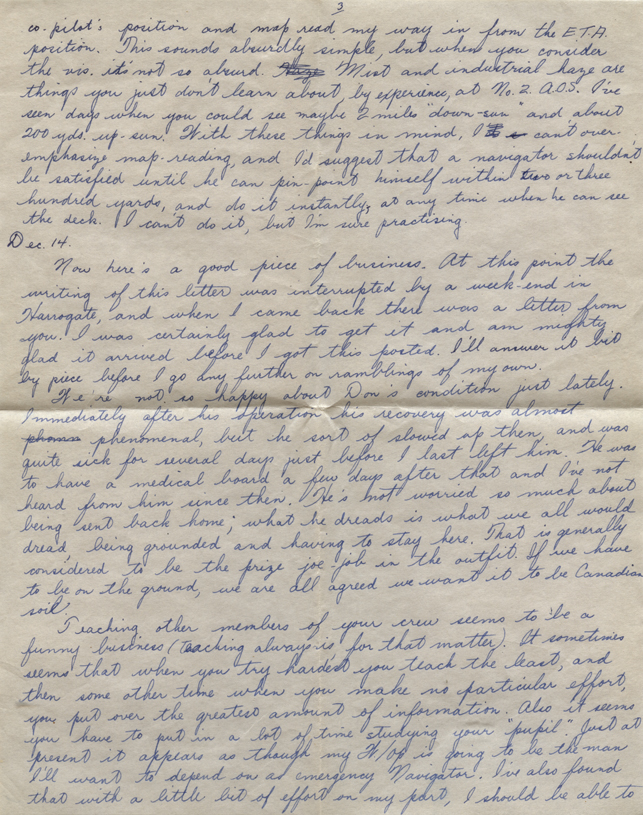 3
co-pilot's position and map read my way in from the E.T.A.
position. This sounds absurdly simple, but when you consider
the vis. it's not so absurd. Mist and industrial haze are
things you just don't learn about, by experience, at No. 2. A.O.S. I've
seen days when you could see maybe 2 miles "down-sun" and about
200 yds. up-sun. With these things in mind, I can't over-
emphasize map-reading, and I'd suggest that a navigator shouldn't
be satisfied until he can pin-point himself within two or three
hundred yards, and do it instantly, at any time when he can see
the deck. I can't do it, but I'm sure practising.
Dec. 14.
Now here's a good piece of business. At this point the
writing of this letter was interrupted by a week-end in
Harrogate, and when I came back there was a letter from
you. I was certainly glad to get it and am mighty
glad it arrived before I got this posted. I'll answer it bit
by piece before I go any further on ramblings of my own.
We're not so happy about Don's condition just lately.
Immediately after his operation his recovery was almost
phenomenal, but he sort of slowed up then, and was
quite sick for several days just before I last left him. He was
to have a medical board a few days after that and I've not
heard from him since then. He's not worried so much about
being sent back home; what he dreads is what we all would
dread, being grounded and having to stay here. That is generally
considered to be the prize joe-job in the outfit. If we have
to be on the ground, we are all agreed we want it to be Canadian
soil.
Teaching other members of your crew seems to be a
funny business (teaching always is for that matter). It sometimes
seems that when you try hardest you teach the least, and
then some other time when you make no particular effort,
you put over the greatest amount of information. Also it seems
you have to put in a lot of time studying your "pupil". Just at
present it appears as though my W/op is going to be the man
I'll want to depend on as emergency Navigator. I've also found
that with a little bit of effort on my part, I should be able to